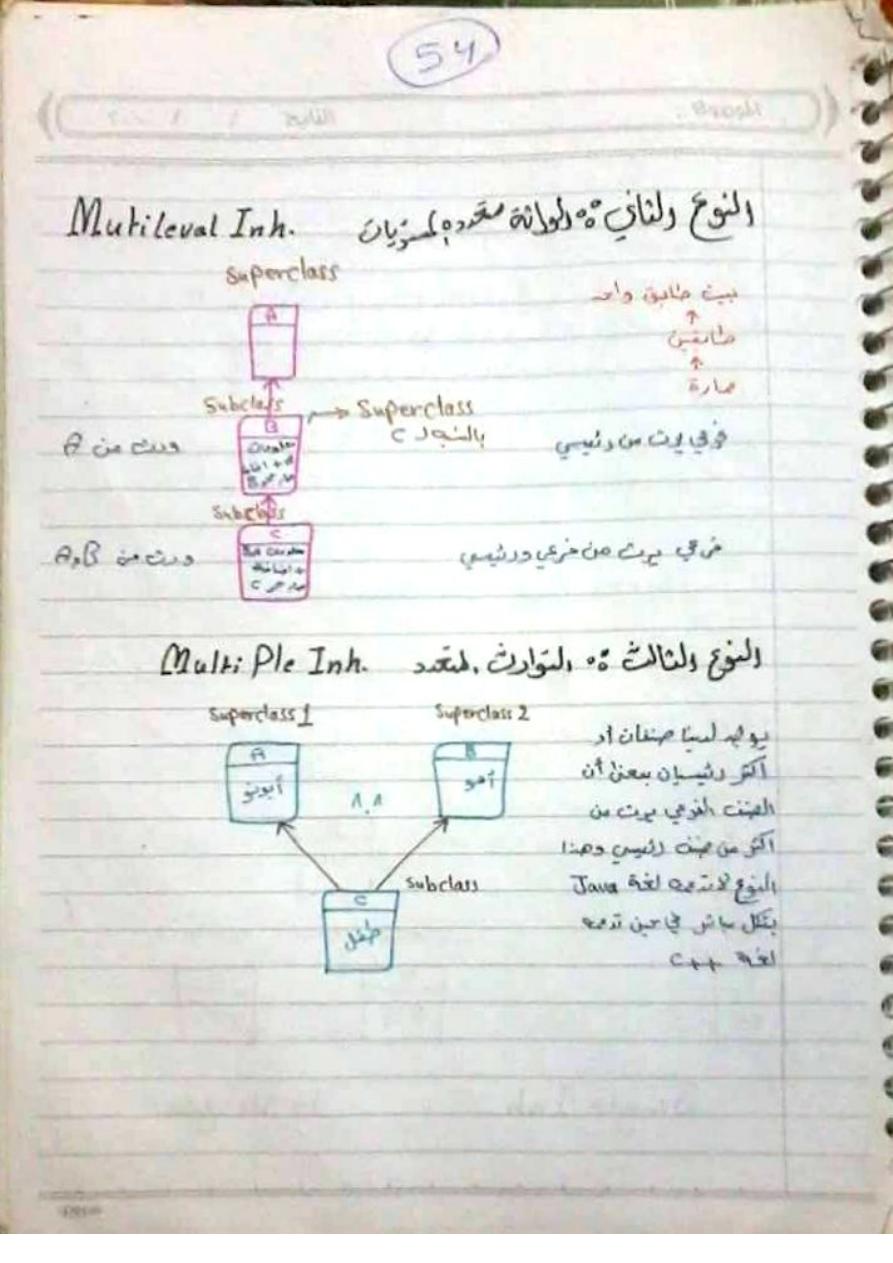 54
الموضوع: التاريخ / /
Mutileval Inh. النوع الثاني : الوراثة متعدده المستويات
Superclass
A
بيت طابق واحد
↑
طابقين
↑
عمارة
Subclass
B
→ Superclass
بالنسبة لـ C
ورث من A
فرعي يرث من رئيسي
Subclass
C
ورث من A,B
فرعي يرث من فرعي ورئيسي
Multi Ple Inh. النوع الثالث : التوارث المتعدد
Superclass 1
A
Superclass 2
B
Subclass
C
طفل
يوجد لدينا صنفان او
اكثر رئيسيان بمعنى أن
الصنف الفرعي يرث من
اكثر من صنف رئيسي وهذا
النوع لا تدعمه لغة Java
بشكل مباشر في حين تدعمه
لغة C++